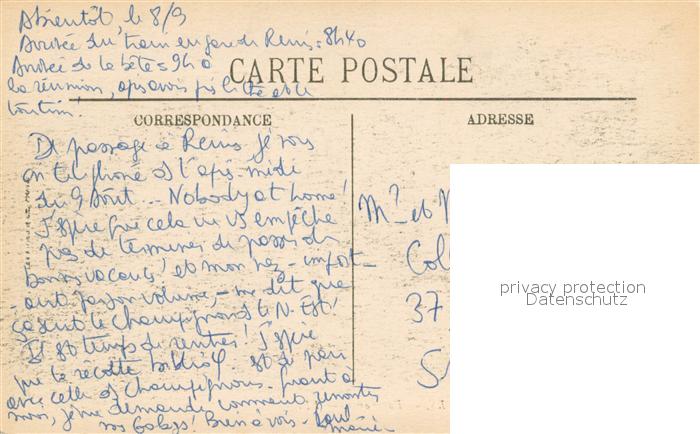 Abientôt, le 8/9
Arrivée du train en gare de Reims : 8h40
Arrivée de la bête : 9h0
la réunion, après avoir pris le thé et le
toutim.
CARTE POSTALE
CORRESPONDANCE
ADRESSE
De passage à Reims je vous
ai téléphoné l'après-midi
du 9 Août... Nobody at home!
J'espère que cela ne vs empêche
pas de terminer de passer de
bonnes vacances! et mon nez - import-
-ant par son volume, - me dit que
ça sent le champignon ds le N. Est!
Il est temps de rentrer! J'espère
que la récolte est de pair
avec celle des champignons. Quant à
moi, je me demande comment
vos Bien à vois - Paul
Marie-
Mr et M
Col
37
S
privacy protection
Datenschutz